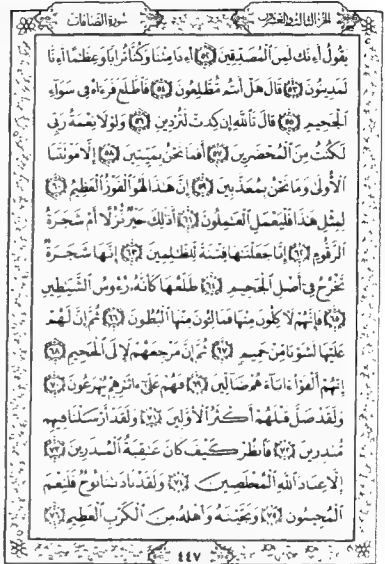 الجزء الثالث والعشرون سورة الصافات
يَقُولُ أَءِنَّكَ لَمِنَ ٱلْمُصَدِّقِينَ ٥٢ أَءِذَا مِتْنَا وَكُنَّا تُرَابًا وَعِظَٰمًا أَءِنَّا
لَمَدِينُونَ ٥٣ قَالَ هَلْ أَنتُم مُّطَّلِعُونَ ٥٤ فَٱطَّلَعَ فَرَءَاهُ فِى سَوَآءِ
ٱلْجَحِيمِ ٥٥ قَالَ تَٱللَّهِ إِن كِدتَّ لَتُرْدِينِ ٥٦ وَلَوْلَا نِعْمَةُ رَبِّى
لَكُنتُ مِنَ ٱلْمُحْضَرِينَ ٥٧ أَفَمَا نَحْنُ بِمَيِّتِينَ ٥٨ إِلَّا مَوْتَتَنَا
ٱلْأُولَىٰ وَمَا نَحْنُ بِمُعَذَّبِينَ ٥٩ إِنَّ هَٰذَا لَهُوَ ٱلْفَوْزُ ٱلْعَظِيمُ ٦٠
لِمِثْلِ هَٰذَا فَلْيَعْمَلِ ٱلْعَٰمِلُونَ ٦١ أَذَٰلِكَ خَيْرٌ نُّزُلًا أَمْ شَجَرَةُ
ٱلزَّقُّومِ ٦٢ إِنَّا جَعَلْنَٰهَا فِتْنَةً لِّلظَّٰلِمِينَ ٦٣ إِنَّهَا شَجَرَةٌ
تَخْرُجُ فِىٓ أَصْلِ ٱلْجَحِيمِ ٦٤ طَلْعُهَا كَأَنَّهُۥ رُءُوسُ ٱلشَّيَٰطِينِ
٦٥ فَإِنَّهُمْ لَءَاكِلُونَ مِنْهَا فَمَالِـُٔونَ مِنْهَا ٱلْبُطُونَ ٦٦ ثُمَّ إِنَّ لَهُمْ
عَلَيْهَا لَشَوْبًا مِّنْ حَمِيمٍ ٦٧ ثُمَّ إِنَّ مَرْجِعَهُمْ لَإِلَى ٱلْجَحِيمِ ٦٨
إِنَّهُمْ أَلْفَوْا۟ ءَابَآءَهُمْ ضَآلِّينَ ٦٩ فَهُمْ عَلَىٰٓ ءَاثَٰرِهِمْ يُهْرَعُونَ ٧٠
وَلَقَدْ ضَلَّ قَبْلَهُمْ أَكْثَرُ ٱلْأَوَّلِينَ ٧١ وَلَقَدْ أَرْسَلْنَا فِيهِم
مُّنذِرِينَ ٧٢ فَٱنظُرْ كَيْفَ كَانَ عَٰقِبَةُ ٱلْمُنذَرِينَ ٧٣
إِلَّا عِبَادَ ٱللَّهِ ٱلْمُخْلَصِينَ ٧٤ وَلَقَدْ نَادَىٰنَا نُوحٌ فَلَنِعْمَ
ٱلْمُجِيبُونَ ٧٥ وَنَجَّيْنَٰهُ وَأَهْلَهُۥ مِنَ ٱلْكَرْبِ ٱلْعَظِيمِ ٧٦
٤٤٧